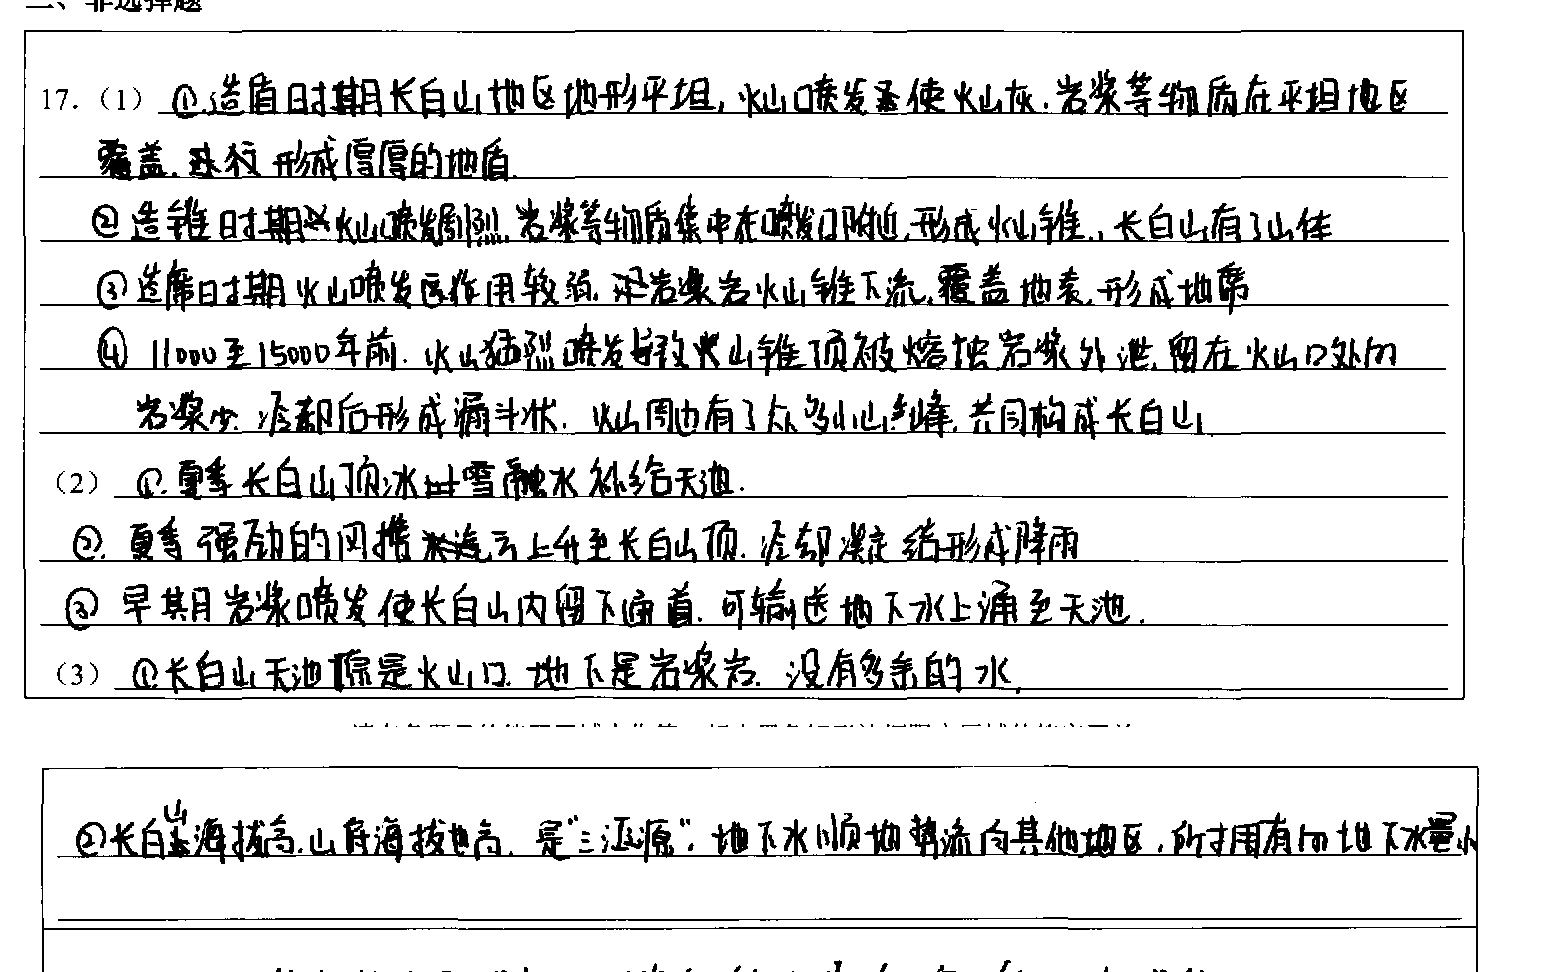 二、非选择题
17.（1）①造盾时期长白山地区地形平坦，火山喷发使火山灰、岩浆等物质在平坦地区
覆盖，形成厚厚的地盾.
②造锥时期火山喷发剧烈，岩浆等物质集中在喷发口附近，形成火山锥，长白山有了山体
③造席时期火山喷发作用较弱，岩浆岩火山锥下流，覆盖地表，形成地席
④ 11000至15000年前，火山猛烈喷发导致火山锥顶被熔蚀岩浆外泄，留在火山口处的
岩浆少，冷却后形成漏斗状，火山周边有了众多小山峰，共同构成长白山
（2）①.夏季长白山顶冰雪融水补给天池.
②. 夏季强劲的风携上升至长白山顶，冷却凝结形成降雨
③ 早期岩浆喷发使长白山内留下通道，可输送地下水上涌至天池.
（3）①长白山天池原是火山口，地下是岩浆岩，没有多余的水，
②长白山海拔高，山脊海拔也高，是“三江源”，地下水顺地势流向其他地区，所拥有的地下水量小